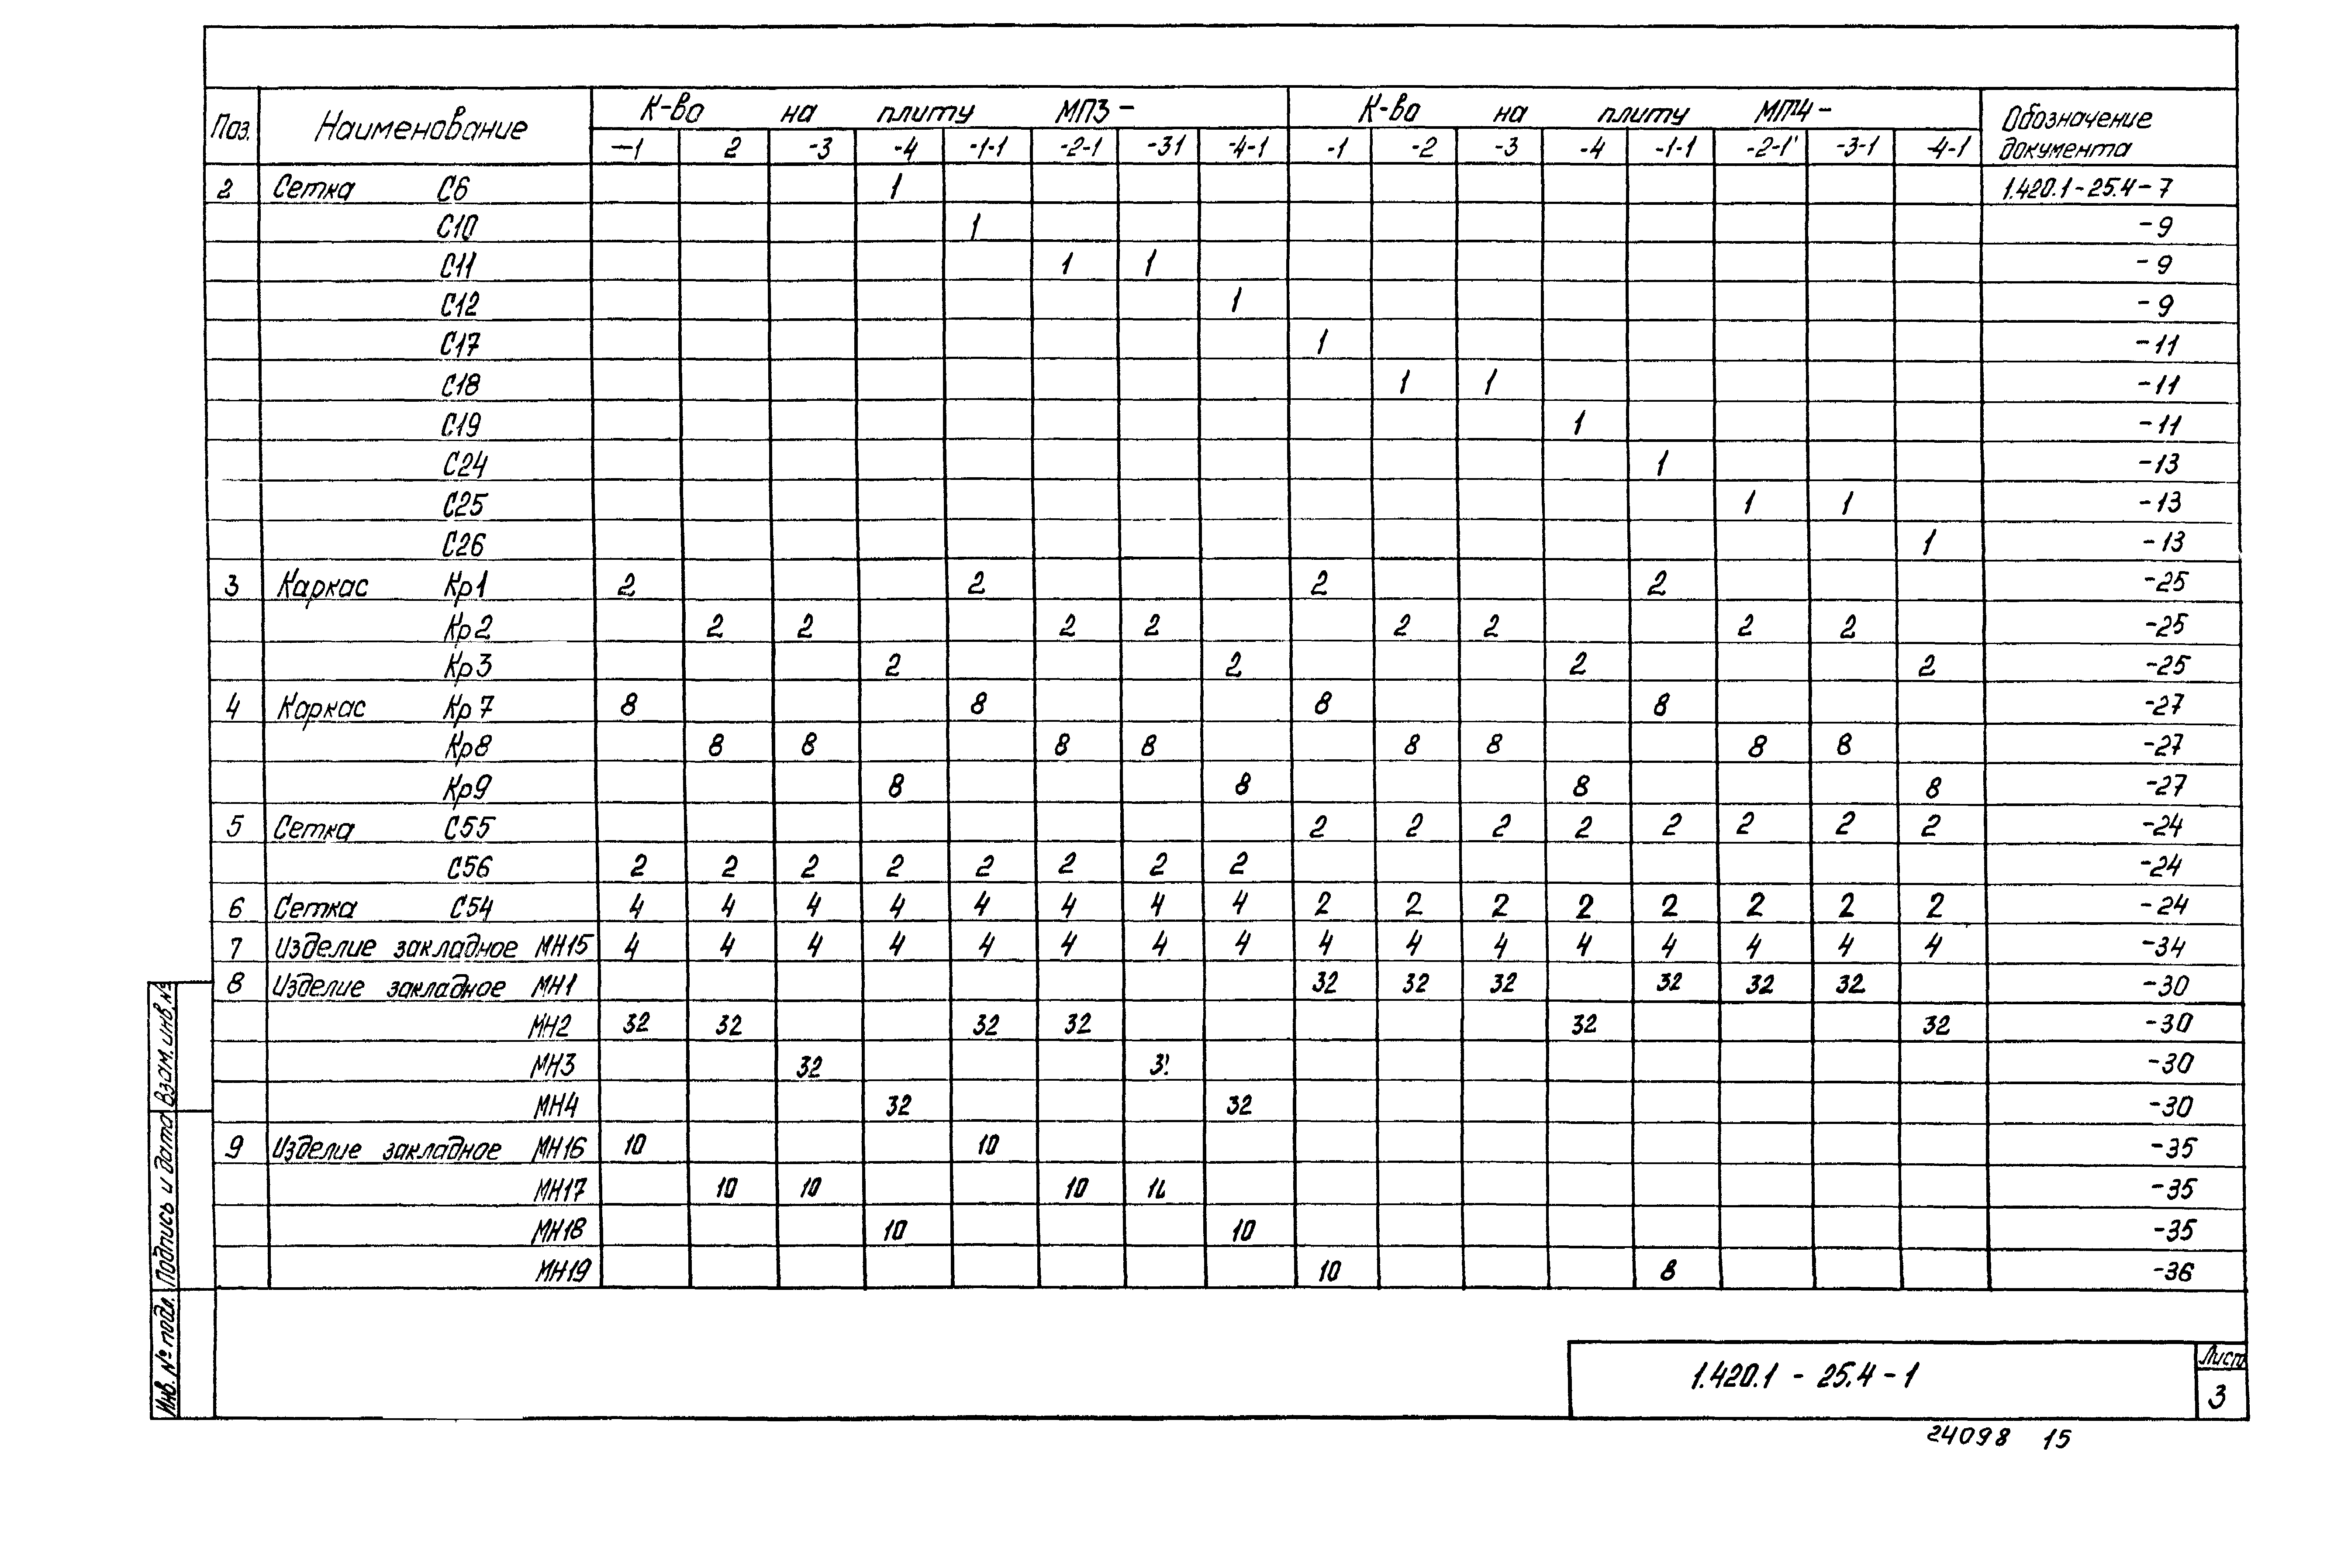 Поз. Наименование К-во на плиту МП3- К-во на плиту МП4- Обозначение документа
—1 2 -3 -4 -1-1 -2-1 -31 -4-1 -1 -2 -3 -4 -1-1 -2-1 -3-1 -4-1
2 Сетка С6 1 1.420.1-25.4-7
С10 1 -9
С11 1 1 -9
С12 1 -9
С17 1 -11
С18 1 1 -11
С19 1 -11
С24 1 -13
С25 1 1 -13
С26 1 -13
3 Каркас Кр1 2 2 2 2 -25
Кр2 2 2 2 2 2 2 2 2 -25
Кр3 2 2 2 2 -25
4 Каркас Кр7 8 8 8 8 -27
Кр8 8 8 8 8 8 8 8 8 -27
Кр9 8 8 8 8 -27
5 Сетка С55 2 2 2 2 2 2 2 2 -24
С56 2 2 2 2 2 2 2 2 -24
6 Сетка С54 4 4 4 4 4 4 4 4 2 2 2 2 2 2 2 2 -24
7 Изделие закладное МН15 4 4 4 4 4 4 4 4 4 4 4 4 4 4 4 4 -34
8 Изделие закладное МН1 32 32 32 32 32 32 -30
МН2 32 32 32 32 32 32 -30
МН3 32 -30
МН4 32 32 -30
9 Изделие закладное МН16 10 10 -35
МН17 10 10 10 -35
МН18 10 10 -35
МН19 10 8 -36
Инв. № подл. Подпись и дата Взам. инв. №
1.420.1 - 25.4 - 1
Лист
3
24098 15